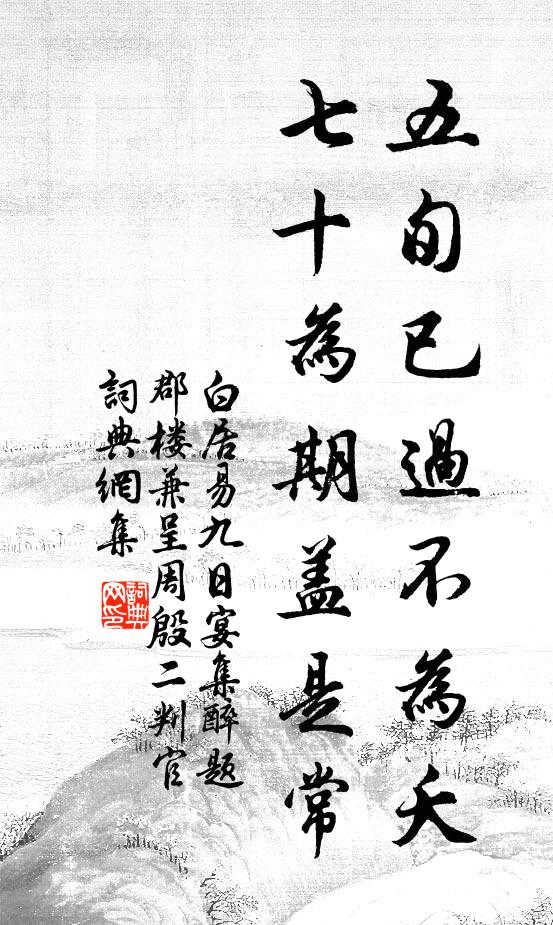 五旬已過不為夭
七十為期盖是常
白居易九日宴集醉题
郡楼兼呈周殷二判官
詞典網集
詞典
网印